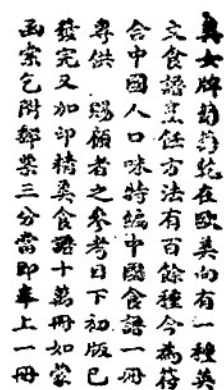 美女牌葡萄乾在歐美向有一種英
文食譜烹飪方法有百餘種今為符
合中國人口味特編中國食譜一冊
專供　賜顧者之參考目下初版已
發完又加印精美食譜十萬冊如蒙
函索乞附郵票三分當即奉上一冊